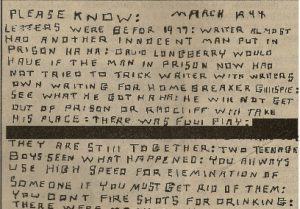 PLEASE KNOW: MARCH 1994
LETTERS WERE BEFOR 1977: WRITER ALMOST
HAD ANOTHER INNOCENT MAN PUT IN
PRISON HA HA: DAVID LONGBERRY WOULD
HAVE IF THE MAN IN PRISON NOW HAD
NOT TRIED TO TRICK WRITER WITH WRITERS
OWN WRITING FOR HOMEBREAKER GILLISPIE:
SEE WHAT HE GOT HA HA: HE WILL NOT GET
OUT OF PRISON OR RADCLIFF WILL TAKE
HIS PLACE: THERE WAS FOUL PLAY:
THEY ARE STILL TOGETHER: TWO TEENAGE
BOYS SEEN WHAT HAPPENED: YOU ALWAYS
USE HIGH SPEED FOR ELEMENATION OF
SOMEONE IF YOU MUST GET RID OF THEM:
YOU DONT FIRE SHOTS FOR DRINKING:
THERE WERE